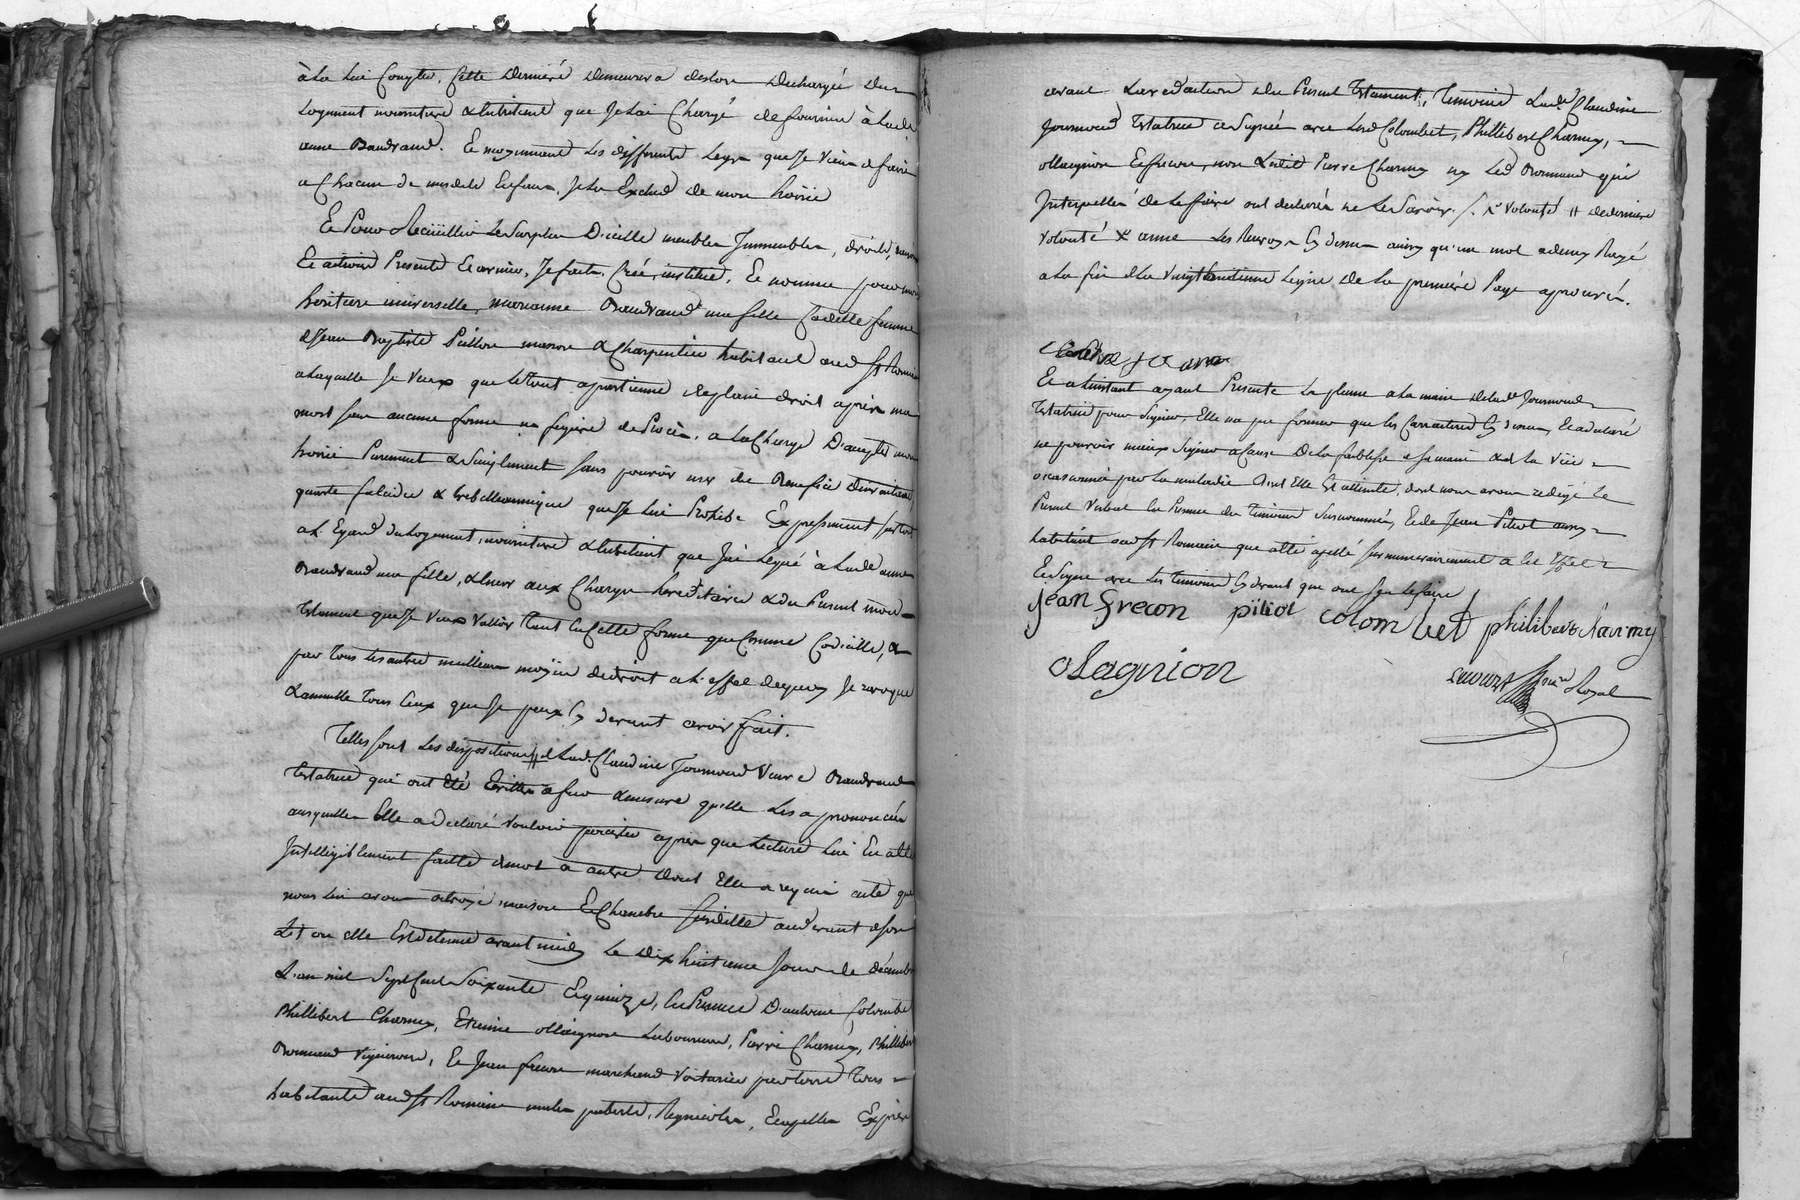 à la lui Compter. Cette Derniere demeurera deslors Dechargée du
Logement nourriture & habitant que Je lai Chargé de fournir à Lade
anne Baudrand. Et moyennant les differents Legs que Je viens de faire
a Chacun de mesdits Enfans, Je les Exclud de mon hoirie
Et Pour Recüillir le Surplus D'icelle meubles Immeubles, droits, noms
Et actions Presents Et avenir, Je fais, Crée, institue, Et nomme pour mon
heritiere universelle, marianne Baudrand ma fille Cadette femme
de Jean Baptiste Peillon masson & Charpentier habitant aud St Romain
a laquelle Je veux que le tout apartienne de plein droit après ma
mort sans aucune forme ny figure de Procès, a la Charge D'accepter mon
hoirie Purement & Simplement sans pouvoir user du Benefice D'inventaire
quarte falcidie & trebellianique que Je lui Prohibe Expressement surtout
a l'Egard du Logement, nourriture & habitant que J'ai Legué à Lade anne
Baudrand ma fille, & sur aux Charges hereditaires & du Present mon
testament que Je veux Valloir tant En Cette forme que Comme Codicille, &
par tous les autres meilleurs moyens de droit a l'effet de quoy Je revoque
& annulle tous Ceux que Je peux Cy devant avoir fait.
Telles sont les dispositions # de Lad. Claudine Journoud Veuve Baudrand
testatrice qui ont été Ecrittes a fur & mesure quelle les a prononcées
ausquelles Elle a declaré vouloir persister après que Lecture lui En a été
Intelligiblement faitte de mot a autre dont Elle a requis acte que
nous lui avons octroyé, maison Et Chambre sus dittes au devant de son
Lit ou elle Est detenue avant midy Le dix huitieme Jour de décembre
L'an mil Sept Cent Soixante Et quinze, En Presence D'antoine Colombet
Phillibert Charmy, Etienne ollaignon Laboureurs, Pierre Charmy, Phillibert
Bonnand Vignerons, Et Jean frecon marchand Voiturier par terre tous
habitants aud St Romain males puberes, Regnicoles, Enapellés Exprès
avant La redaction du Present testament, temoins Lade Claudine
Journoud testatrice a Signée avec Lesd Colombet, Phillibert Charmy,
ollaignon Et frecon, non Ledit Pierre Charmy ny Led Bonnand qui
Interpellés de le faire ont declarés ne le Savoir. /. x volonté # de derniere
volonté x anne les Renvoys Cy dessus ainsy qu'un mot a demy Rayé
a la fin de la vingt huitieme Ligne de la premiere Page aprouvés.
Et a l'instant ayant Presenté La plume a la main de lade Journoud
testatrice pour Signer, Elle na pu former que les Carracteres Cy dessus, Et a declaré
ne pouvoir mieux Signer a Cause De la faiblesse de sa main & de la Vüe
occasionnée par la maladie dont Elle Est atteinte, dont nous avons redigé le
Present Verbal En Presence des temoins Susnommés, Et de Jean Pitiot aussy
habitant aud St Romain que a été apellé surnumerairement a Cet Effet
Et Signe avec Les temoins Cy devant que ont Sçu le faire
jean frecon pitiot colombet philibert charmy
olagnion
Nore Royal